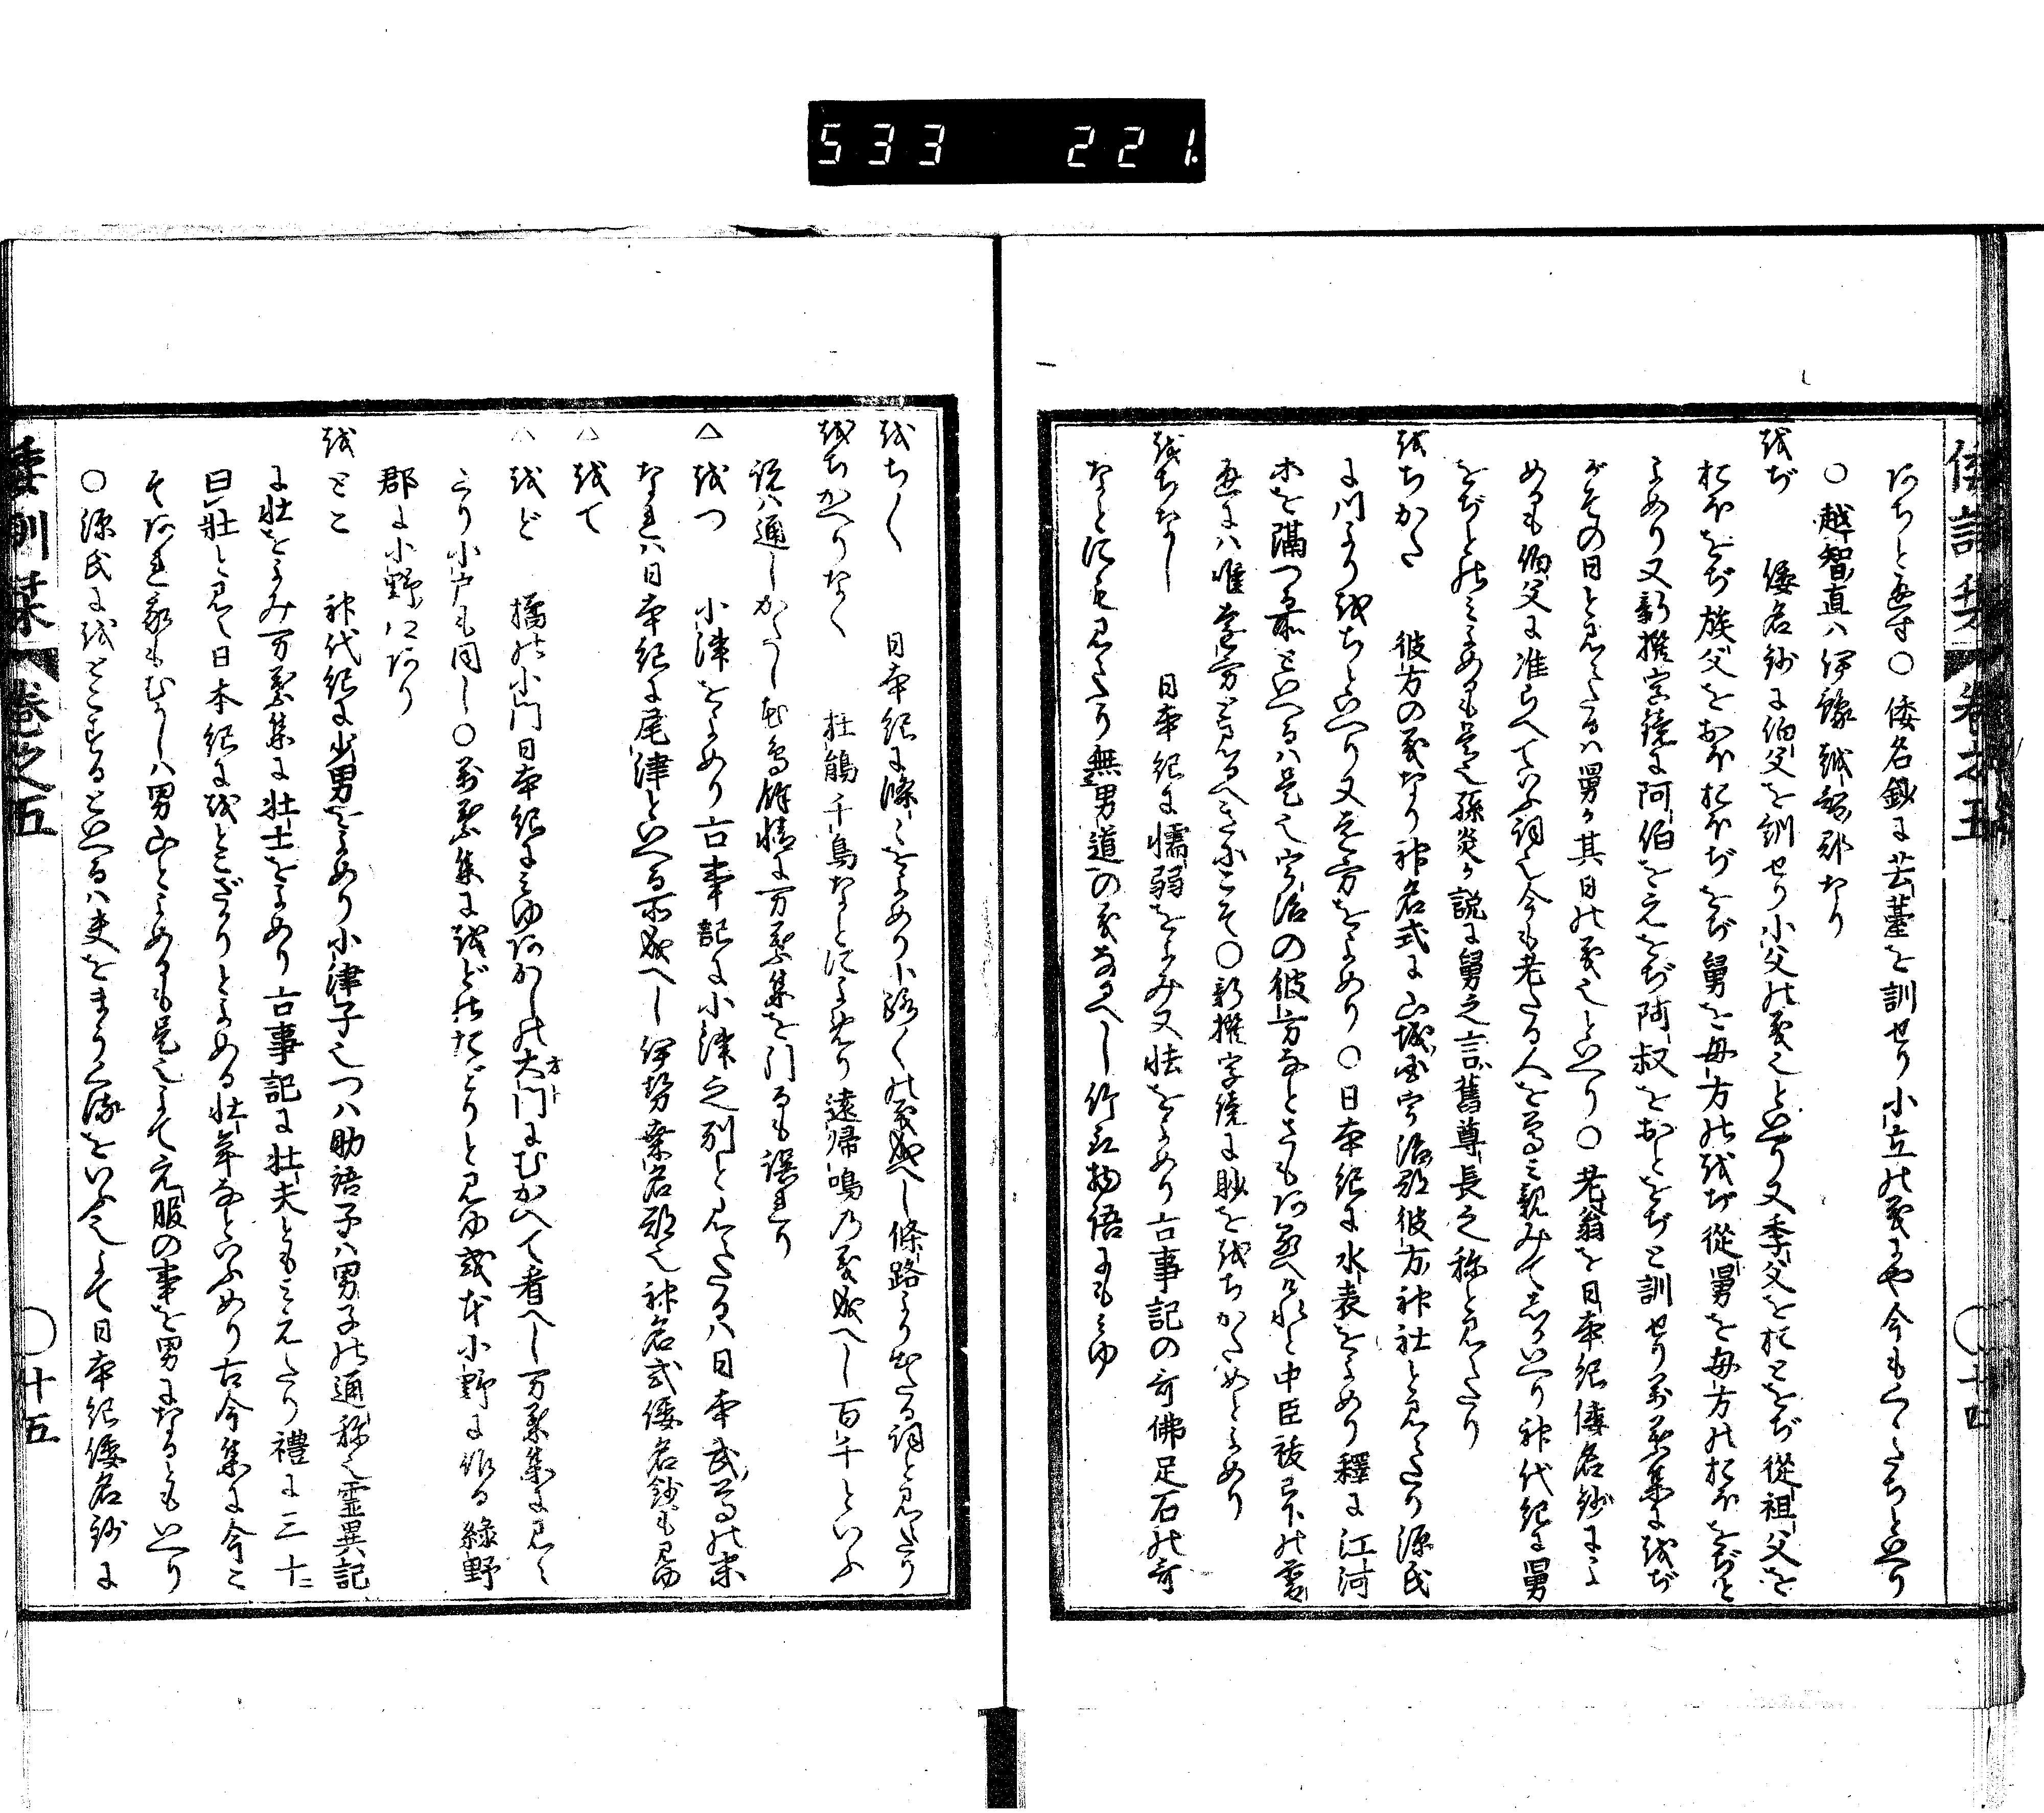 533 221.
倭訓栞 巻之五 ○十四
をちと通す○倭名鈔に芸薹を訓せり小立の義にや今もくゝたちといへり
○越智直ハ伊豫越智郡なり
をぢ 倭名鈔に伯父を訓せり小父の義也といへり又季父をおとをぢ從祖父を
おほをぢ族父をおほおほぢをぢ舅を母方のをぢ從舅を母方のおほをぢと
よめり又新撰字鏡に阿伯をえをぢ阿叔をおとをぢと訓せり萬葉集にをぢ
がその日と見えたるハ舅か其日の義也といへり○老翁を日本紀倭名鈔によ
めるも伯父に准らへていふ詞也今も老たる人を尊み親みてしかいへり神代紀に舅
をぢとのみよめるも是也孫炎か説に舅之言舊尊長之称と見えたり
をちかた 彼方の義なり神名式に山城国宇治郡彼方神社と見えたり源氏
に川よりをちといへり又遠方をよめり○日本紀に水表をよめり釋に江河
水を隔つる所といへるハ是也宇治の彼方なと
○新撰字鏡に眇ををちかためとよめり
をぢなし 日本紀に懦弱をよみ又怯をよめり古事記の哥佛足石の哥
なとにも見えたり無男道の義なるへし竹取物語にもみゆ
をち〳〵 日本紀に條々をよめり小路〳〵の義成へし條路より出たる詞と見えたり
をちかへりなく 杜鵑千鳥なとによめり遠帰鳴乃義成へし百千といふ
説ハ通しかたし
△をつ 小津をよめり古事記に小津之別と見えたるハ日本武尊の末
なれハ日本紀に尾津といへる所成へし伊勢桑名郡也神名式倭名鈔も見ゆ
△をて
△をど 橘の小門日本紀にみゆあかしの大門にむかへて看へし万葉集に見え
たり小戸も同し○萬葉集にをどのたどりと見ゆ或本小野に作る緑野
郡に小野ハあり
をとこ 神代紀に少男をよめり小津子也つハ助語子ハ男子の通称也霊異記
に壮をよみ万葉集に壮士をよめり古事記に壮夫ともみえたり禮に三十
曰壮と見ゆ日本紀にをとこざかりとよめる壮年なといふめり古今集に今こ
そあれ我もむかしハ男山とよめるも是也よて元服の事を男になるともいへり
○源氏にをとこするといへるハ夫をまうく㒵をいふ也よて日本紀倭名鈔に
倭訓栞 巻之五 ○十五